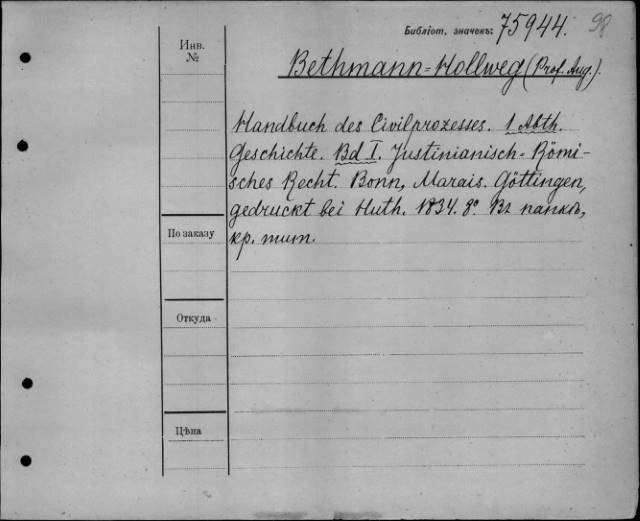 Библіот. значекъ: 75944. 98
Инв. №
Bethmann-Hollweg (Prof. Aug.).
Handbuch des Civilprozesses. 1 Abth.
Geschichte. Bd I. Justinianisch-Römi-
sches Recht. Bonn, Marais. Göttingen,
gedruckt bei Huth. 1834. 8º. Въ папкѣ,
кр. тит.
По заказу
Откуда
Цѣна